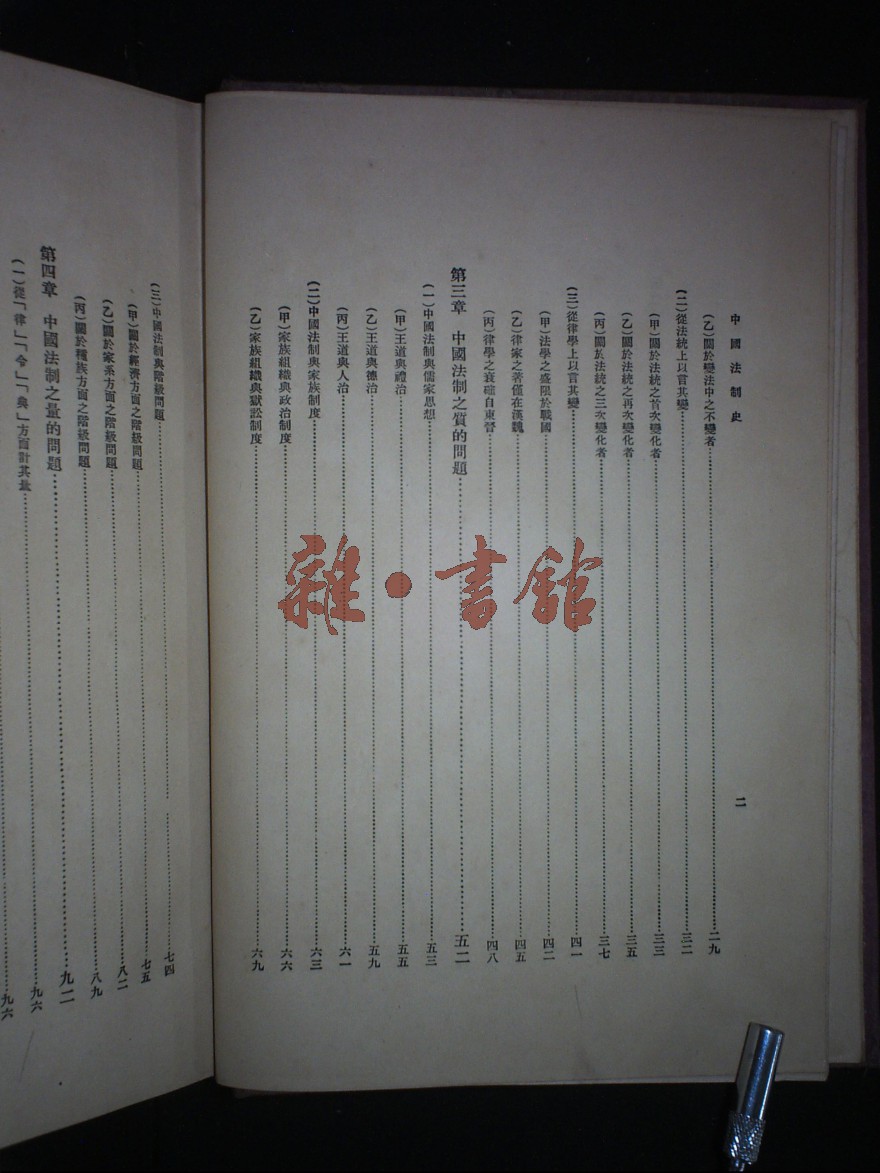 中國法制史
二
（乙）關於變法中之不變者……二九
（二）從法統上以言其變……三二
（甲）關於法統之首次變化者……三三
（乙）關於法統之再次變化者……三五
（丙）關於法統之三次變化者……三七
（三）從律學上以言其變……四一
（甲）法學之盛限於戰國……四二
（乙）律家之著僅在漢魏……四五
（丙）律學之衰確自東晉……四八
第三章　中國法制之質的問題……五二
（一）中國法制與儒家思想……五三
（甲）王道與禮治……五五
（乙）王道與德治……五九
（丙）王道與人治……六一
（二）中國法制與家族制度……六三
（甲）家族組織與政治制度……六六
（乙）家族組織與獄訟制度……六九
（三）中國法制與階級問題……七四
（甲）關於經濟方面之階級問題……七五
（乙）關於家系方面之階級問題……八二
（丙）關於種族方面之階級問題……八九
第四章　中國法制之量的問題……九二
（一）從「律」「令」「典」方面計其量……九六
九六
雜·書館